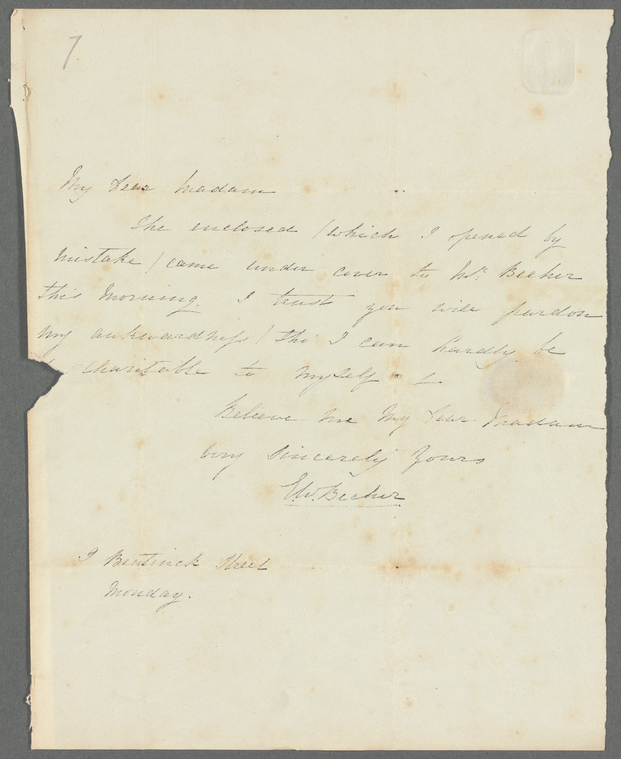 7
My Dear Madam
The enclosed / which I opened by
mistake / came under cover to Mr. Becher
this Morning I trust you will pardon
my aukwardness / tho I can hardly be
charitable to myself
Believe me My Dear Madam
very Sincerely Yours
EW. Becher
7 Bentinck Street
Monday.